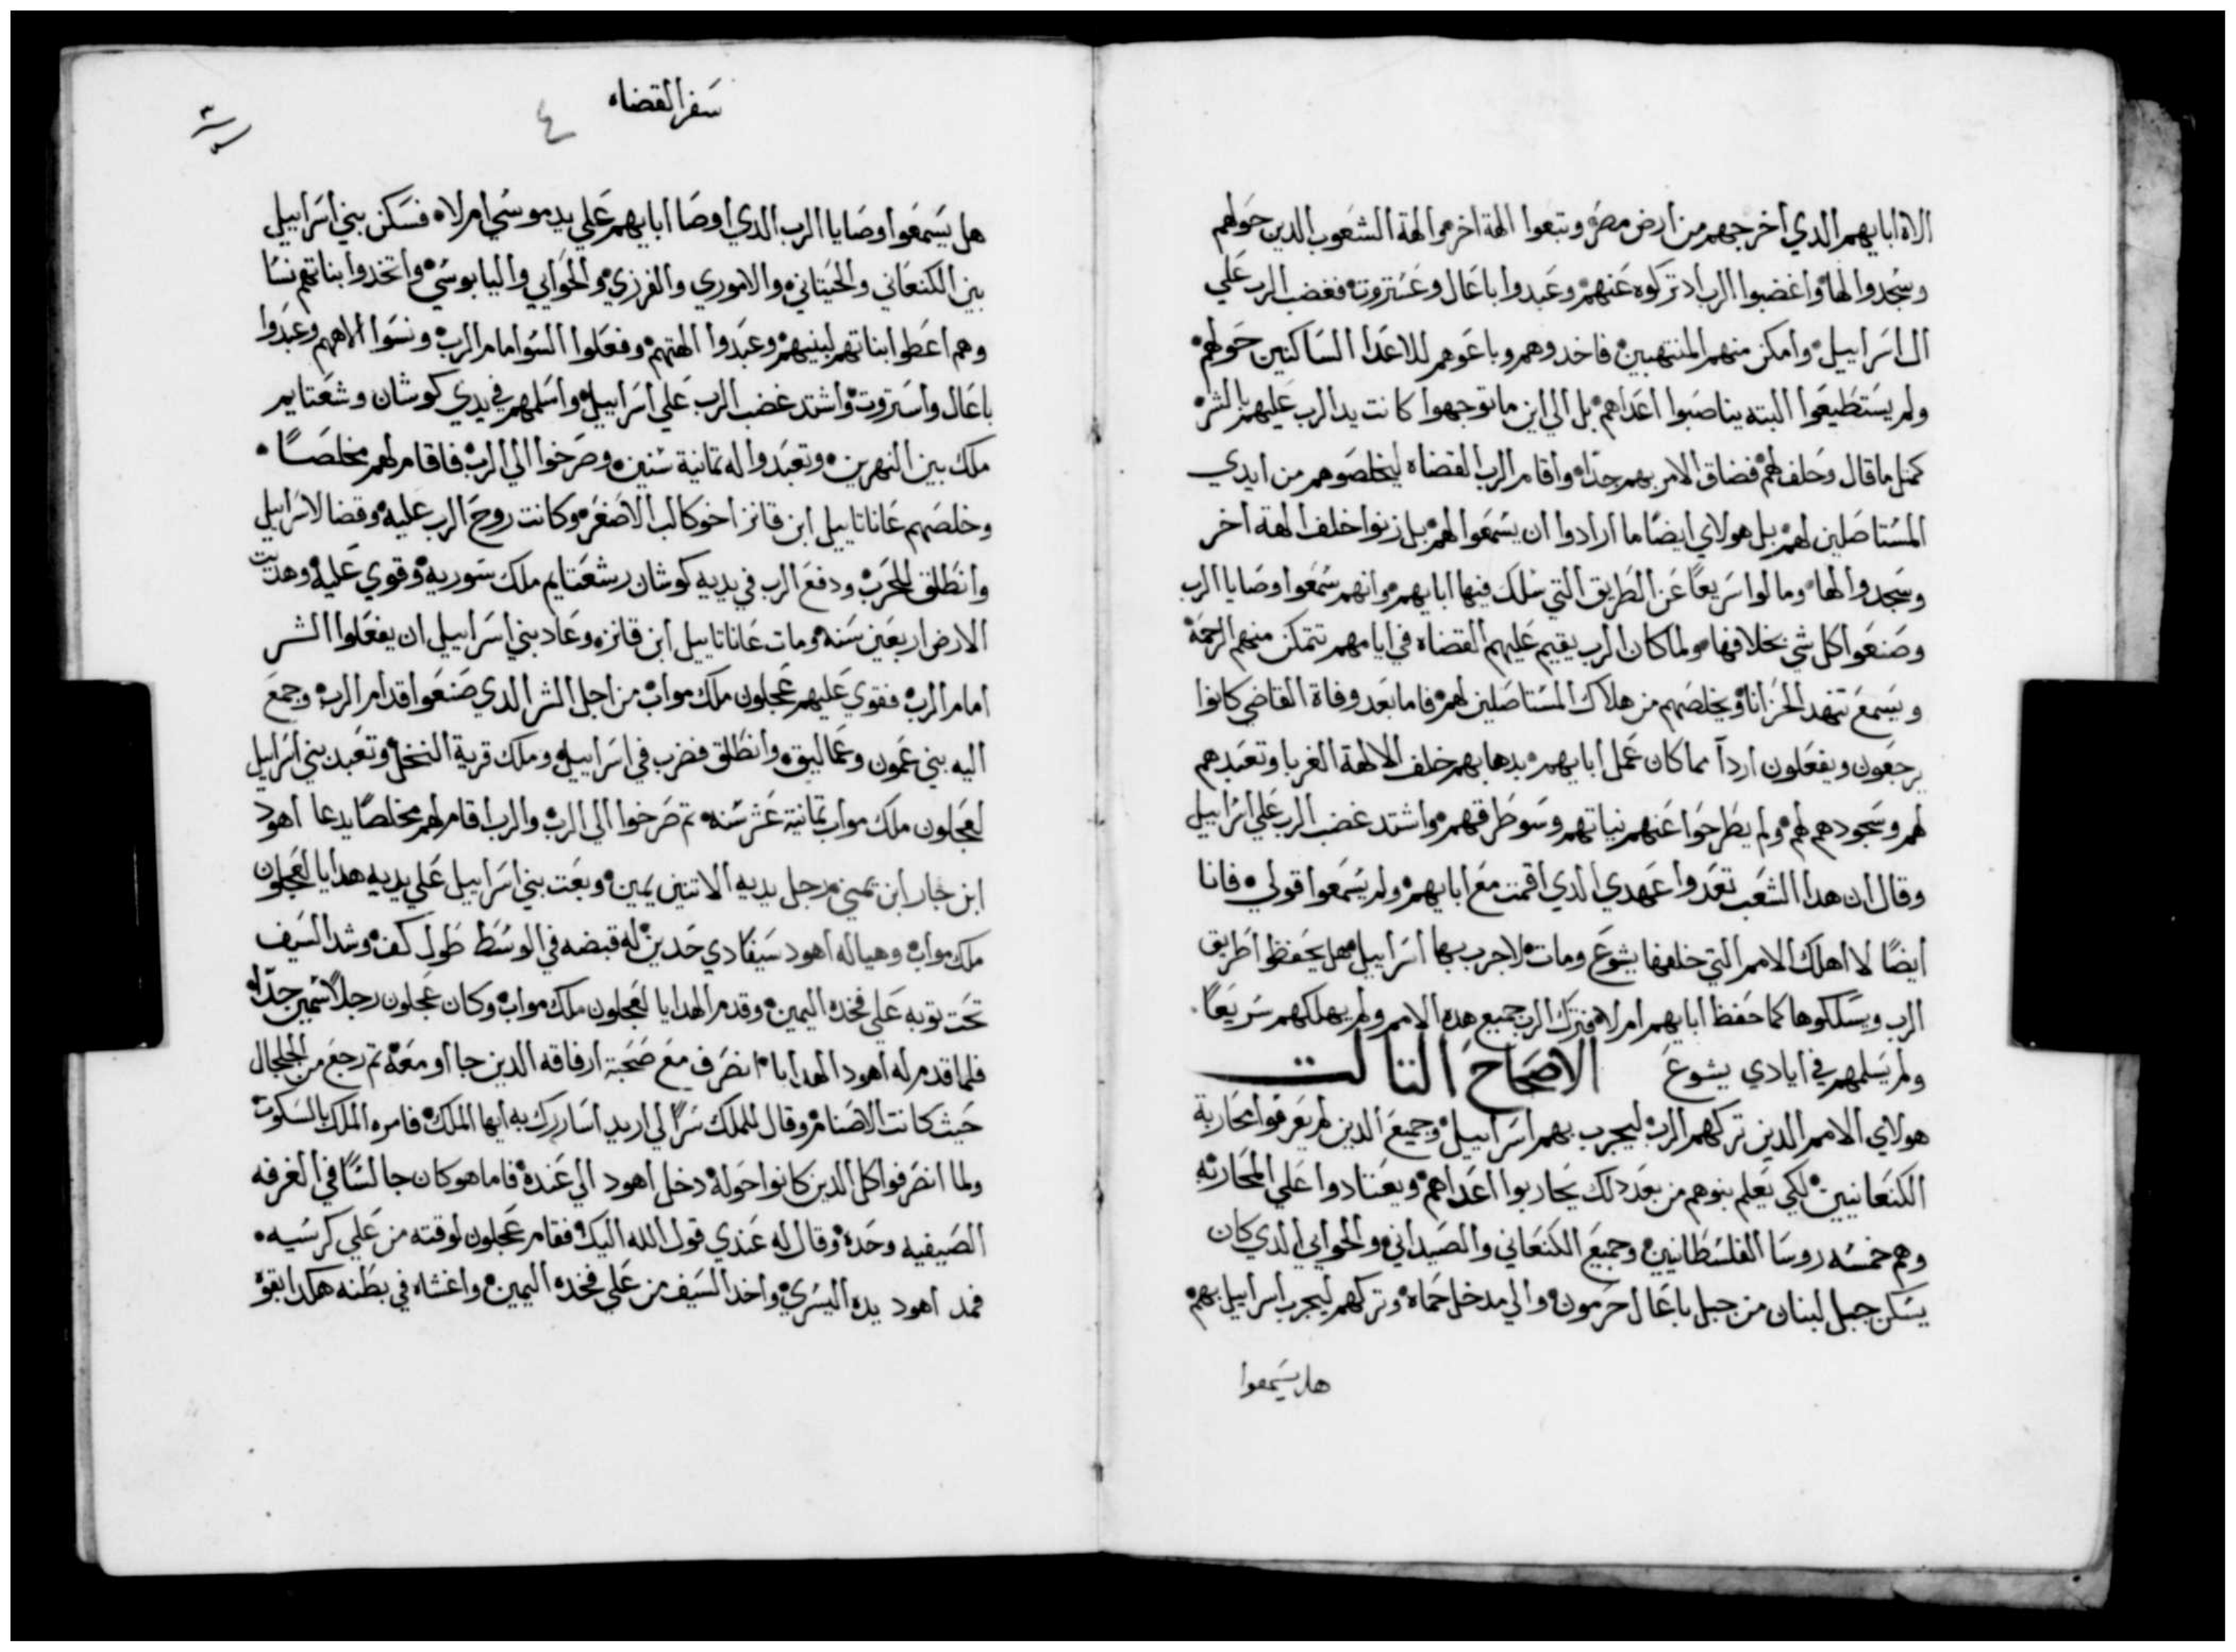 الاه ابايهم الدي اخرجهم من ارض مصر وتبعوا الهة اخر والهة الشعوب الدين حولهم
وسجدوا لها واغضبوا الرب اد تركوه عنهم وعبدوا باعال وعستروت فغضب الرب علي
ال اسراييل وامكن منهم المنتهبين فاخدوهم وباعوهم للاعدا الساكنين حولهم
ولم يستطيعوا البته يناصبوا اعداهم بل الي اين ما توجهوا كانت يد الرب عليهم بالشر
كمتل ما قال وحلف لهم فضاق الامر بهم جدا واقام الرب القضاه ليخلصوهم من ايدي
المستاصلين لهم بل هولاي ايضا ما ارادوا ان يسمعوا لهم بل زنوا خلف الهة اخر
وسجدوا لها ومالوا سريعا عن الطريق التي سلك فيها ابايهم وانهم سمعوا وصايا الرب
وصنعوا كل شي بخلافها ولما كان الرب يقيم عليهم القضاه في ايامهم تتمكن منهم الرحمة
ويسمع تنهد الحزانا ويخلصهم من هلاك المستاصلين لهم فاما بعد وفاة القاضي كانوا
يرجعون ويفعلون اردا مما كان عمل ابايهم بدهابهم خلف الالهة الغربا وتعبدهم
لهم وسجودهم لهم ولم يطرحوا عنهم نياتهم وسو طرقهم واشتد غضب الرب علي اسراييل
وقال ان هدا الشعب تعدوا عهدي الدي اقمت مع ابايهم ولم يسمعوا قولي فانا
ايضا لا اهلك الامم التي خلفها يشوع ومات لاجرب بها اسراييل هل يحفظوا طريق
الرب ويسلكوها كما حفظ ابايهم ام لا فترك الرب جميع هده الامم ولم يهلكهم سريعا
ولم يسلمهم في ايادي يشوع الاصحاح التالت
هولاي الامم الدين تركهم الرب ليجرب بهم اسراييل وجميع الدين لم يعرفوا محاربة
الكنعانيين لكي يعلم بنوهم من بعد دلك يحاربوا اعداهم ويعتادوا علي المحاربه
وهم خمسه روسا الفلسطانيين وجميع الكنعاني والصيداني والحوايي الدي كان
يسكن جبل لبنان من جبل باعال حرمون والي مدخل حماه وتركهم ليجرب اسراييل بهم
هل يسمعوا
سفر القضاه
٤
هل يسمعوا وصايا الرب الدي اوصا ابايهم علي يد موسي ام لا فسكن بني اسراييل
بين الكنعاني والحيتاني والاموري والفرزي والحوايي واليابوسي واتخدوا بناتهم نسا
وهم اعطوا بناتهم لبنيهم وعبدوا الهتهم وفعلوا السو امام الرب ونسوا الاههم وعبدوا
باعال واستروت واشتد غضب الرب علي اسراييل واسلمهم في يدي كوشان وشعتايم
ملك بين النهرين وتعبدوا له تمانية سنين وصرخوا الي الرب فاقام لهم مخلصا
وخلصهم عاناتاييل ابن قانز اخو كالب الاصغر وكانت روح الرب عليه وقضا لاسراييل
وانطلق للحرب ودفع الرب في يديه كوشان رشعتايم ملك سوريه وقوي عليه وهدت
الارض اربعين سنه ومات عاناتاييل ابن قانز وعاد بني اسراييل ان يفعلوا الشر
امام الرب فقوي عليهم عجلون ملك مواب من اجل الشر الدي صنعوا قدام الرب وجمع
اليه بني عمون وعماليق وانطلق فضرب في اسراييل وملك قرية النخل وتعبد بني اسراييل
لعجلون ملك مواب تمانية عشر سنه تم صرخوا الي الرب والرب اقام لهم مخلصا يدعا اهود
ابن جار ابن يميني رجل يديه الاتنين يمين وبعت بني اسراييل علي يديه هدايا لعجلون
ملك مواب وهيا له اهود سيفا دي حدين له قبضه في الوسط طول كف وشد السيف
تحت توبه علي فخده اليمين وقدم الهدايا لعجلون ملك مواب وكان عجلون رجلا سمين جدا
فلما قدم له اهود الهدايا انصرف مع صحبة ارفاقه الدين جااو معه تم رجع من الجلجال
حيث كانت الاصنام وقال للملك سرا لي اريد اساررك به ايها الملك فامره الملك بالسكوت
ولما انصرفوا كل الدين كانوا حوله دخل اهود الي عنده فاما هو كان جالسا في الغرفه
الصيفيه وحده وقال له عندي قول الله اليك فقام عجلون لوقته من علي كرسيه
فمد اهود يده اليسري واخد السيف من علي فخده اليمين واغشاه في بطنه هكدا بقوة